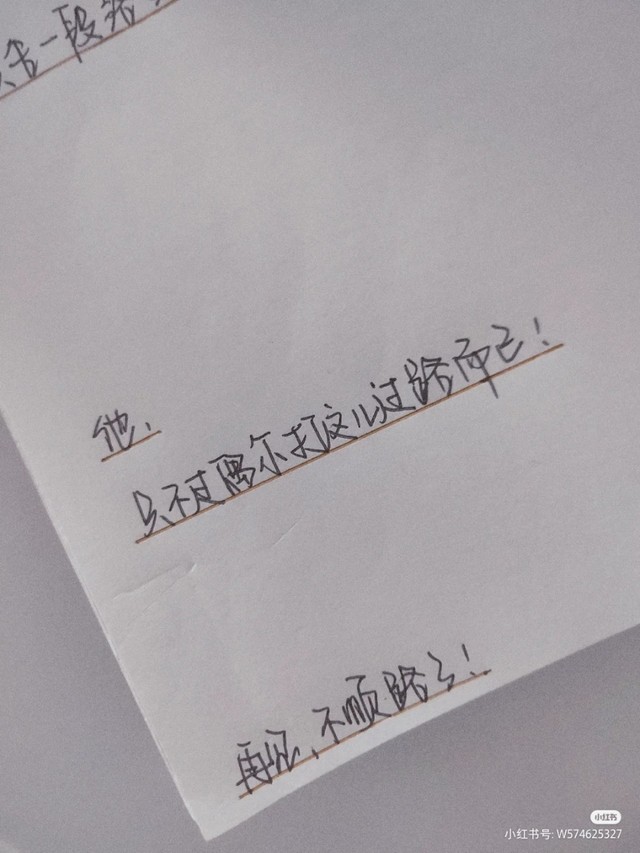 告一段路
他，
只不过偶尔打这儿过路而已！
再见，不顺路了！
小红书
小红书号: W574625327